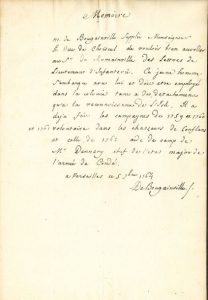 Memoire
M. de Bougainville supplie Monseigneur
le Duc de Choiseul de vouloir bien accorder
au Sr. de des Lettres de
Lieutenant d'Infanterie. Ce jeune homme
s'embarque avec lui et doit être employé
dans la colonie sans aucun
que la reconnaissance de Il a
deja fait les campagnes de 1759 1760
et 1761 volontaire dans les chasseurs de Conflans
et celle de 1762 aide de camp de
Mr. Dennery chef de l'etat major de
l'armée de Condé.
a Versailles ce 5 1764
De Bougainville